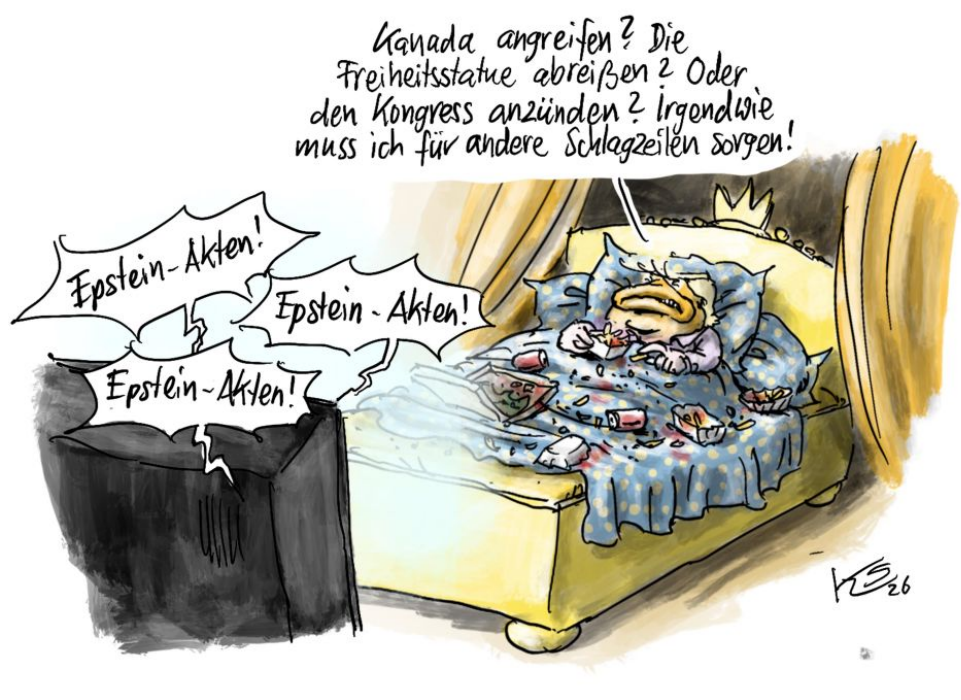 Kanada angreifen? Die
Freiheitsstatue abreißen? Oder
den Kongress anzünden? Irgendwie
muss ich für andere Schlagzeilen sorgen!
Epstein-Akten!
Epstein-Akten!
Epstein-Akten!
KS 26